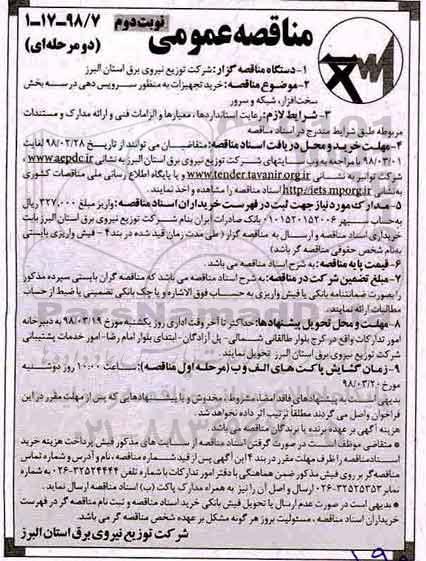 مناقصه عمومی
نوبت دوم
۱-۱۷-۹۸/۷
(دو مرحله‌ای)
۱- دستگاه مناقصه گزار: شرکت توزیع نیروی برق استان البرز
۲- موضوع مناقصه: خرید تجهیزات به منظور سرویس دهی در سه بخش
سخت‌افزار، شبکه و سرور
۳- شرایط لازم: رعایت استانداردها، معیارها و الزامات فنی و ارائه مدارک و مستندات
مربوطه طبق شرایط مندرج در اسناد مناقصه
۴- مهلت خرید و محل دریافت اسناد مناقصه: متقاضیان می توانند از تاریخ ۹۸/۰۲/۲۸ لغایت
۹۸/۰۳/۰۱ با مراجعه به وب سایتهای شرکت توزیع نیروی برق استان البرز به نشانی www.aepdc.ir،
شرکت توانیر به نشانی www.tender.tavanir.org.ir و یا پایگاه اطلاع رسانی ملی مناقصات کشوری
به نشانی http://iets.mporg.ir اسناد مناقصه را مشاهده و اخذ نمایند.
۵- مدارک مورد نیاز جهت ثبت در فهرست خریداران اسناد مناقصه: واریز مبلغ ۳۲۷,۰۰۰ ریال
به حساب سپهر ۰۱۰۱۵۲۰۱۵۲۰۰۶ بانک صادرات ایران بنام شرکت توزیع نیروی برق استان البرز بابت
خریداری اسناد مناقصه و ارسال به مناقصه گزار (طی مدت زمان قید شده در بند ۴ - فیش واریزی بایستی
به نام شخص حقوقی مناقصه گر باشد)
۶- قیمت پایه مناقصه: به شرح اسناد مناقصه می باشد.
۷- مبلغ تضمین شرکت در مناقصه: به شرح اسناد مناقصه می باشد که مناقصه گران بایستی سپرده مذکور
را بصورت ضمانتنامه بانکی یا فیش واریزی به حساب فوق الاشاره و یا چک بانکی تضمینی یا ضبط از حساب
مطالبات ارائه نمایند.
۸- مهلت و محل تحویل پیشنهادها: حداکثر تا آخر وقت اداری روز یکشنبه مورخ ۹۸/۰۳/۱۹ به دبیرخانه
امور تدارکات واقع در کرج بلوار طالقانی شمالی- پل آزادگان - ابتدای بلوار امام رضا - امور خدمات پشتیبانی
شرکت توزیع نیروی برق استان البرز تحویل نمایند.
۹- زمان گشایش پاکت های الف و ب (مرحله اول مناقصه): ساعت ۱۰:۰۰ روز دوشنبه
مورخ ۹۸/۰۳/۲۰
بدیهی است به پیشنهادهای فاقد امضا، مشروط، مخدوش و یا پیشنهادهایی که پس از مهلت مقرر در این
فراخوان واصل می گردند مطلقا ترتیب اثر داده نخواهد شد.
هزینه آگهی بر عهده برنده یا برندگان مناقصه می باشد.
* متقاضی موظف است در صورت گرفتن اسناد مناقصه از سایت های مذکور فیش پرداخت هزینه خرید
اسناد مناقصه را ظرف مهلت مقرر در بند ۴ این آگهی پس از قید شماره مناقصه، نام و آدرس و شماره تماس
مناقصه گر بر روی فیش مذکور ضمن هماهنگی با دفتر امور تدارکات با شماره تلفن ۳۲۵۲۴۴۴۴-۰۲۶ به شماره
نمابر ۳۲۵۲۵۳۵۲-۰۲۶ ارسال و اصل آن را نیز به همراه مدارک پاکت (ب) اسناد مناقصه ارسال نماید.
* بدیهی است در صورت عدم ارسال یا تحویل فیش بانکی خرید اسناد مناقصه و ثبت نام مناقصه گر در فهرست
خریداران اسناد مناقصه، مسئولیت بروز هر گونه مشکل بر عهده شخص مناقصه گر می باشد.
شرکت توزیع نیروی برق استان البرز